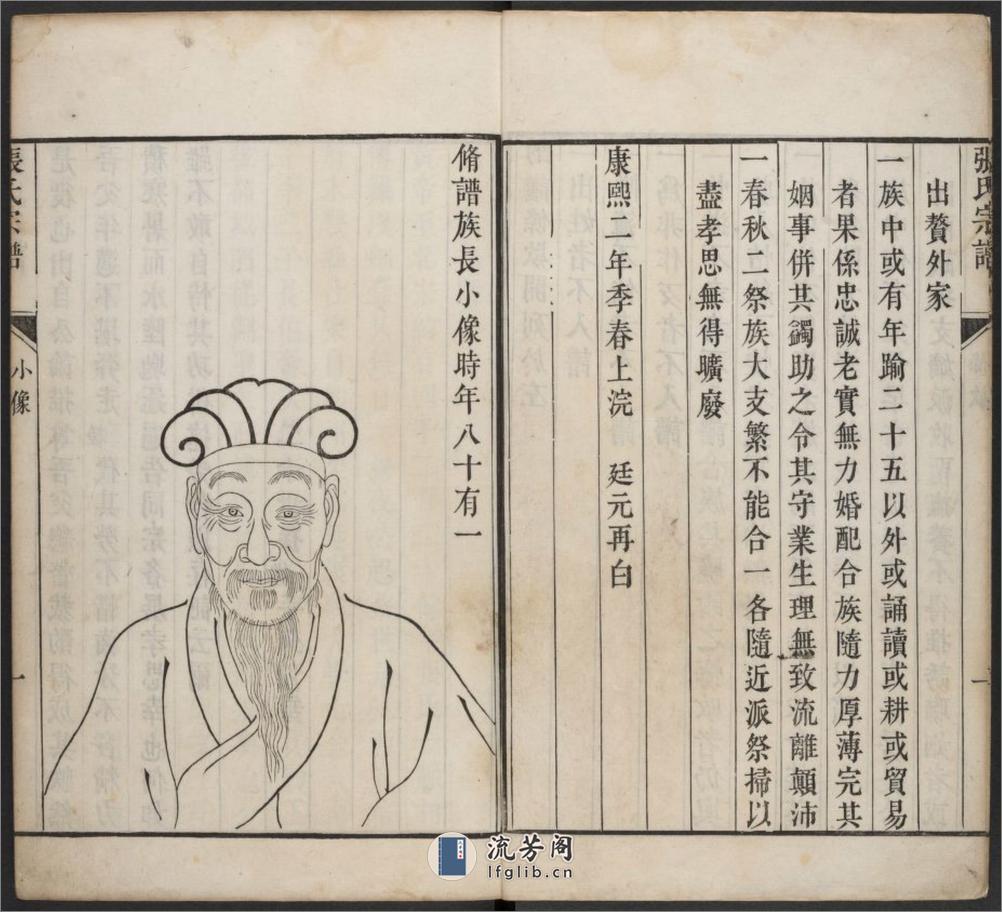 張氏宗譜
一
出贅外家
一族中或有年踰三十五以外或誦讀或耕或貿易
者果係忠誠老實無力婚配合族隨力厚薄完其
姻事併其蠲助之令其守業生理無致流離顛沛
一春秋二祭族大支繁不能合一各隨近派祭掃以
盡孝思無得曠廢
康熙二年季春上浣 廷元再白
脩譜族長小像時年八十有一
張氏宗譜
小像
一
流芳阁
lfglib.cn